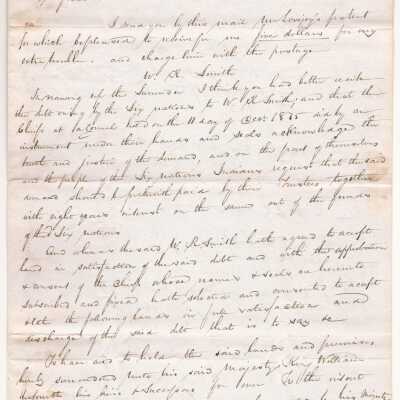 I send you by this mail Mr Lovejoy's patent
for which be pleased to receive for me five dollars for my
extra trouble. and charge him with the postage
W. R. Smith
In naming up the Surrender I think you had better recite
the debt owing by the Six nations to W R Smith, and that the
Chiefs at a Council held on the 11 day of Oct 1835 did by an
instrument under their hands and seals acknowledge the
truth and justice of the demand, and on the part of themselves
and the people of the Six Nations Indians request that the said
amount should be forthwith paid by their Trustees together
with eight years interest on the same out of the funds
of the Six nations
And whereas the said W. R. Smith hath agreed to accept
land in satisfaction of the said debt and with the approbation
& consent of the Chiefs whose names & seals are hereunto
subscribed and fixed hath selected and consented to accept
the following lands in full satisfaction and
discharge of the said debt that is to say
To have and to hold the said lands and premises
hereby surrendered unto his said Majesty King William
his heirs & Successors for ever To the intent
his Majesty